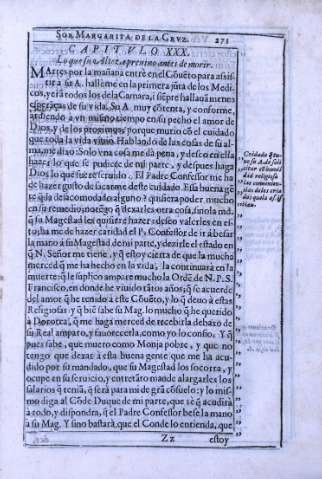 SOR MARGARITA DE LA CRVZ. 271
CAPITVLO XXX.
Lo que su Alteza preuino antes de morir.
MArtes por la mañana entrè en el Cõuẽto para assis-
tir a su A. hallème en la primera jũta de los Medi-
cos, y esta todos los de la Camara, siẽpre hallaua menos
de su vida. Su A muy cõtenta, y conforme,
ardiendo a vn mismo tiempo en su pecho el amor de
Dios, y de los proximos, porque murio cõ el cuidado
que toda la vida viuio. Hablando de las cosas de su al-
ma, me dixo: Solo vna cosa me dà pena, y desseo en ella
hazer lo que se pudiere de mi parte, y despues haga
Dios lo que fuere seruido. El Padre Confessor me ha
de hazer gusto de sacarme deste cuidado. Esta buena gẽ
te q̃ da de acomodado alguno? quisiera poder mucho
en su remedio; no tẽgo q̃ dexarles otra cosa, sino la md.
q̃ su Magestad les quisiere hazer: desseo valerles en es-
to, ha me de hazer caridad el P. Confessor de ir à besar
la mano à su Magestad de mi parte, y dezirle el estado en
q̃ N. Señor me tiene, y q̃ estoy cierta de que la mucha
merced q̃ me ha hecho en la vida, la continuarà en la
muerte: q̃ le suplico ampare mucho la Ordẽ de N. P. S.
Francisco, en donde he viuido tãtos años; q̃ se acuerde
del amor q̃ he tenido à este Cõuẽto, y lo q̃ deuo à estas
Religiosas y q̃ biẽ sabe su Mag. lo mucho q̃ he querido
à Dorotea, q̃ me haga merced de recibirla debaxo de
su Real amparo, y fauorecerla, como yo lo confio. Y q̃
pues sabe, que muero como Monja pobre, y que no
tengo que dexar à esta buena gente que me ha acu-
dido por su mandado, que su Magestad los socorra, y
ocupe en su seruicio, y entretãto mande alargarles los
salarios q̃ teniã, q̃ serà para mi de grã cõsuelo: y lo mis-
mo diga al Cõde Duque de mi parte, que sè q̃ acudirà
a todo, y dispondrà, q̃ el Padre Confessor bese la mano
a su Mag. Y sino bastarà, que el Conde lo entienda, que
Zz estoy
Cuidado q̃ tu-
uo su A. de soli-
citar el
dad religiosa
las comenien-
das de los cria-
dos que la assis-